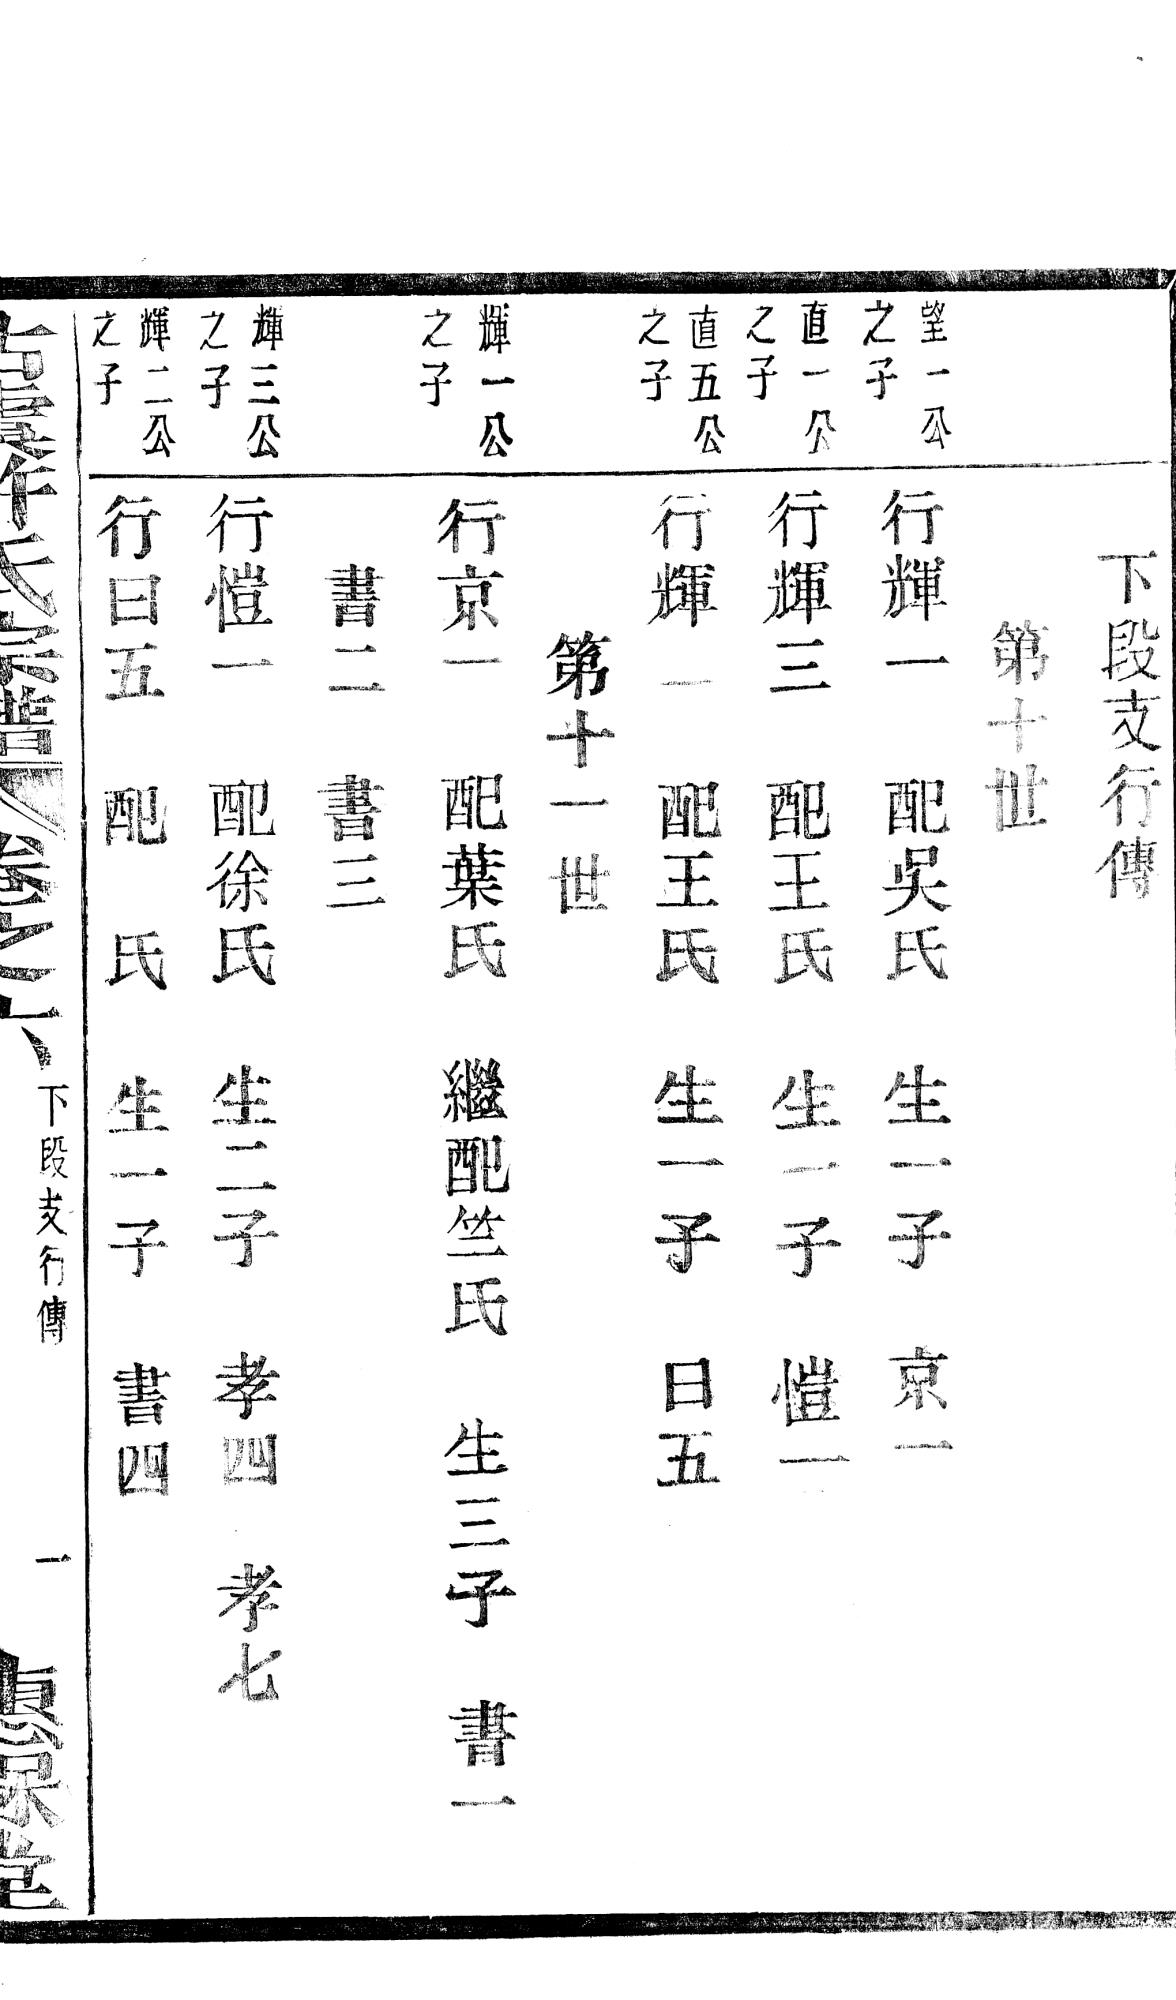 下段支行傳
第十世
望一公
之子
行輝一　配吳氏　生一子　京一
直一公
之子
行輝三　配王氏　生一子　愷一
直五公
之子
行輝二　配王氏　生一子　日五
第十一世
輝一公
之子
行京一　配葉氏　繼配竺氏　生三子　書一
書二　書三
輝三公
之子
行愷一　配徐氏　生二子　孝四　孝七
輝二公
之子
行日五　配　氏　生一子　書四
氏宗譜　卷之六　下段支行傳　一　堂